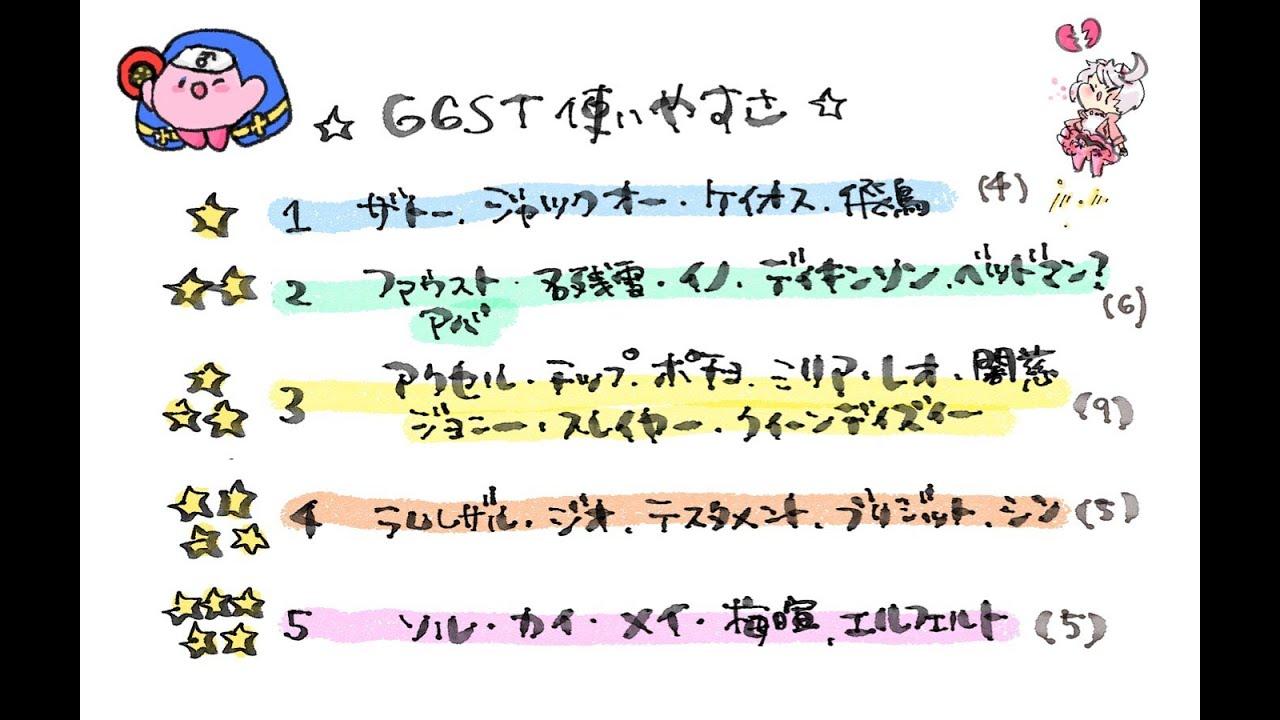 ☆ GGST 使いやすさ ☆
1 ザトー・ジャックオー・ケイオス・飛鳥 (4)
2 ファウスト・名残雪・イノ・ディキンソン・ベッドマン? (6)
アバ
3 アクセル・チップ・ポチョ・ミリア・レオ・闇慈
ジョニー・スレイヤー・クイーンディズィー (9)
4 ラムレザル・ジオ・テスタメント・ブリジット・シン (5)
5 ソル・カイ・メイ・梅喧・エルフェルト (5)